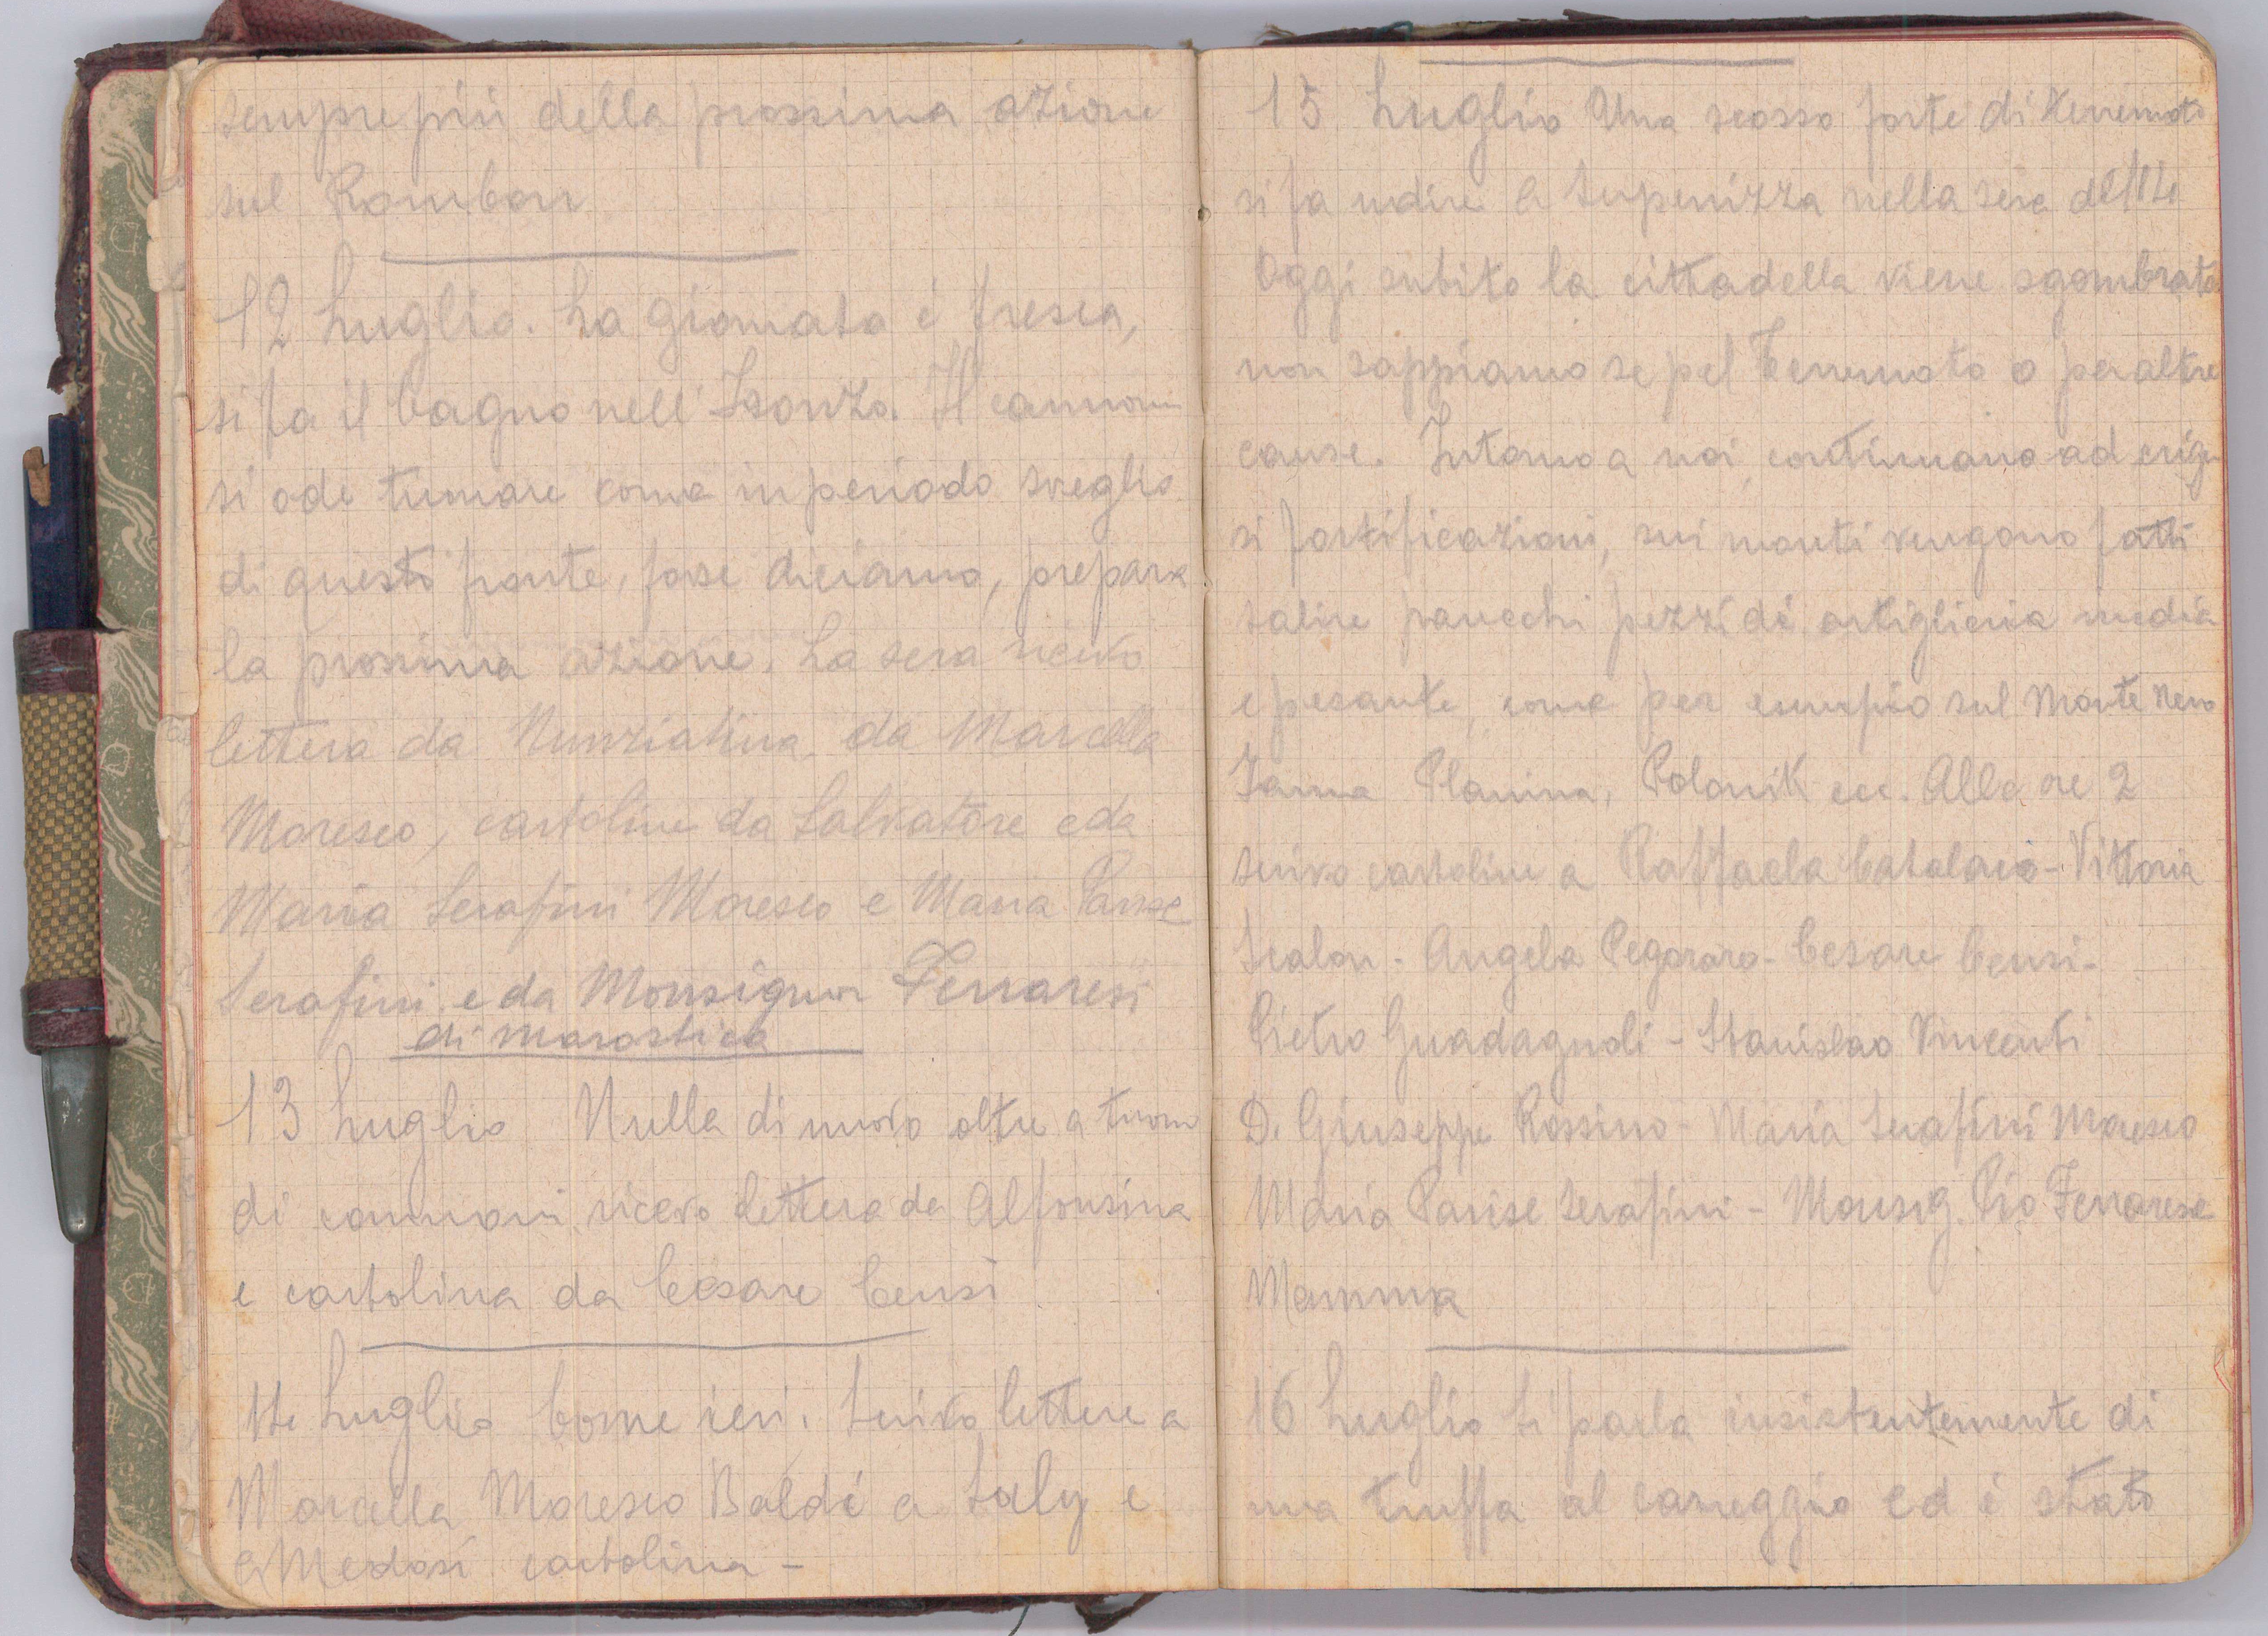 sempre più della prossima azione
sul Rombon
12 Luglio. La giornata é fresca,
si fa il bagno nell'Isonzo. Il cannone
si ode tuonare come in periodo sveglio
di questo fronte, forse diciamo, prepara
la prossima azione. La sera ricevo
lettera da Nunziatina, da Marcella
Moresco, cartoline da Salvatore e da
Maria Serafini Moresco e Maria Parise
Serafini e da Monsignor Ferraresi
di Marostica
13 Luglio Nulla di nuovo oltre a tuono
di cannoni, ricevo lettera da Alfonsina
e cartolina da Cesare Censi
14 Luglio Come ieri. Scrivo lettere a
Marcella Moresco Baldi a Saly e
a cartolina -
15 Luglio Una scossa forte di terremoto
si fa udire a Serpenizza nella sera del 14
Oggi subito la cittadella viene sgombrata
non sappiamo se pel terremoto o per altre
cause. Intorno a noi continuano ad eriger
si fortificazioni, sui monti vengono fatti
salire parecchi pezzi di artiglieria media
e pesante, come per esempio sul Monte Nero
Janna Planina, Polonik ecc. Alle ore 2
scrivo cartoline a Raffaela Catalano - Vittoria
Scalon - Angela Pegoraro - Cesare Censi -
Pietro Guadagnoli - Stanislao Vincenti
D. Giuseppe Rossino - Maria Serafini Moresco
Maria Parise Serafini - Monsig. Pio Ferrarese
Mamma
16 Luglio Si parla insistentemente di
una truffa al carreggio ed é stato